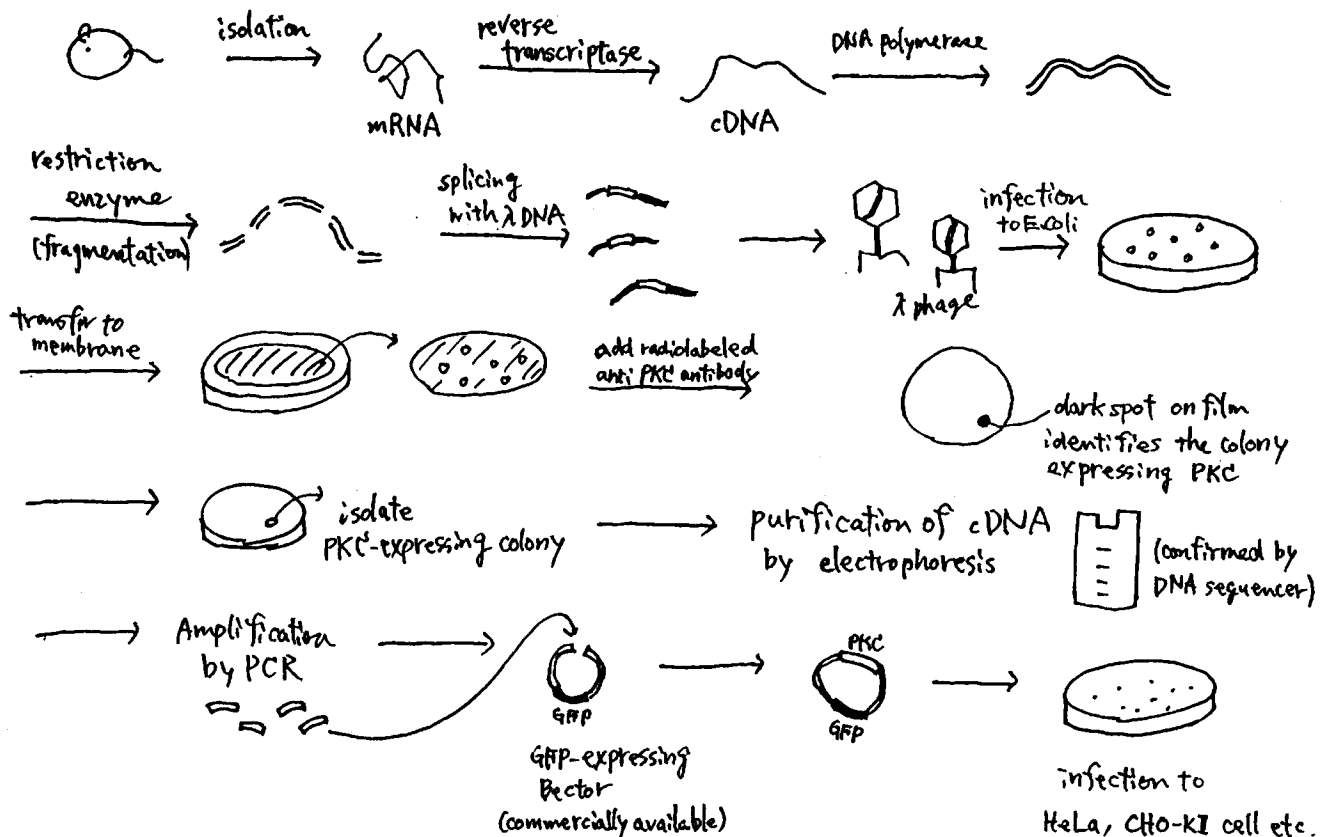 isolation
mRNA
reverse
transcriptase
cDNA
DNA polymerase
restriction
enzyme
(fragmentation)
splicing
with λ DNA
λ phage
infection
to E.coli
transfer to
membrane
add radiolabeled
anti PKC antibody
dark spot on film
identifies the colony
expressing PKC
isolate
PKC-expressing colony
purification of cDNA
by electrophoresis
(confirmed by
DNA sequencer)
Amplification
by PCR
GFP
GFP-expressing
Bector
(commercially available)
PKC
GFP
infection to
HeLa, CHO-KI cell etc.